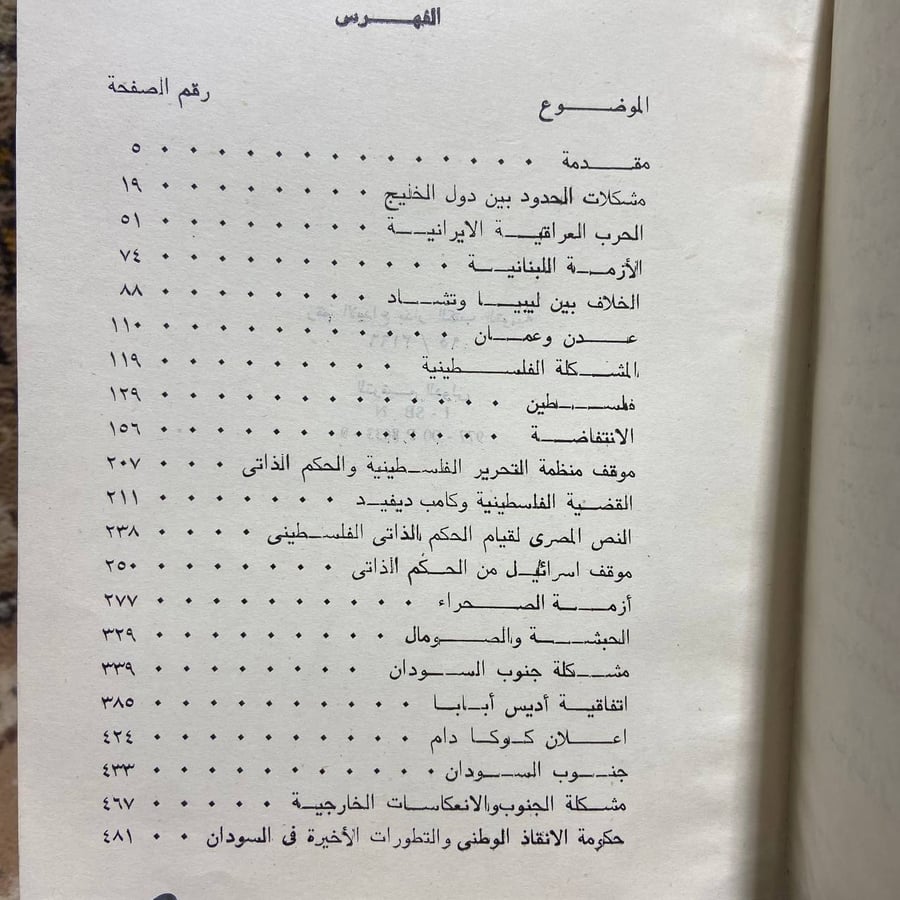 الفهرس
الموضوع رقم الصفحة
مقدمة ٥
مشكلات الحدود بين دول الخليج ١٩
الحرب العراقية الايرانية ٥١
الأزمة اللبنانية ٧٤
الخلاف بين ليبيا وتشاد ٨٨
عدن وعمان ١١٠
المشكلة الفلسطينية ١١٩
فلسطين ١٢٩
الانتفاضة ١٥٦
موقف منظمة التحرير الفلسطينية والحكم الذاتى ٢٠٧
القضية الفلسطينية وكامب ديفيد ٢١١
النص المصرى لقيام الحكم الذاتى الفلسطينى ٢٣٨
موقف اسرائيل من الحكم الذاتى ٢٥٠
أزمة الصحراء ٢٧٧
الحبشة والصومال ٣٢٩
مشكلة جنوب السودان ٣٣٩
اتفاقية أديس أبابا ٣٨٥
اعلان كوكا دام ٤٢٤
جنوب السودان ٤٣٣
مشكلة الجنوب والانعكاسات الخارجية ٤٦٧
حكومة الانقاذ الوطنى والتطورات الأخيرة فى السودان ٤٨١